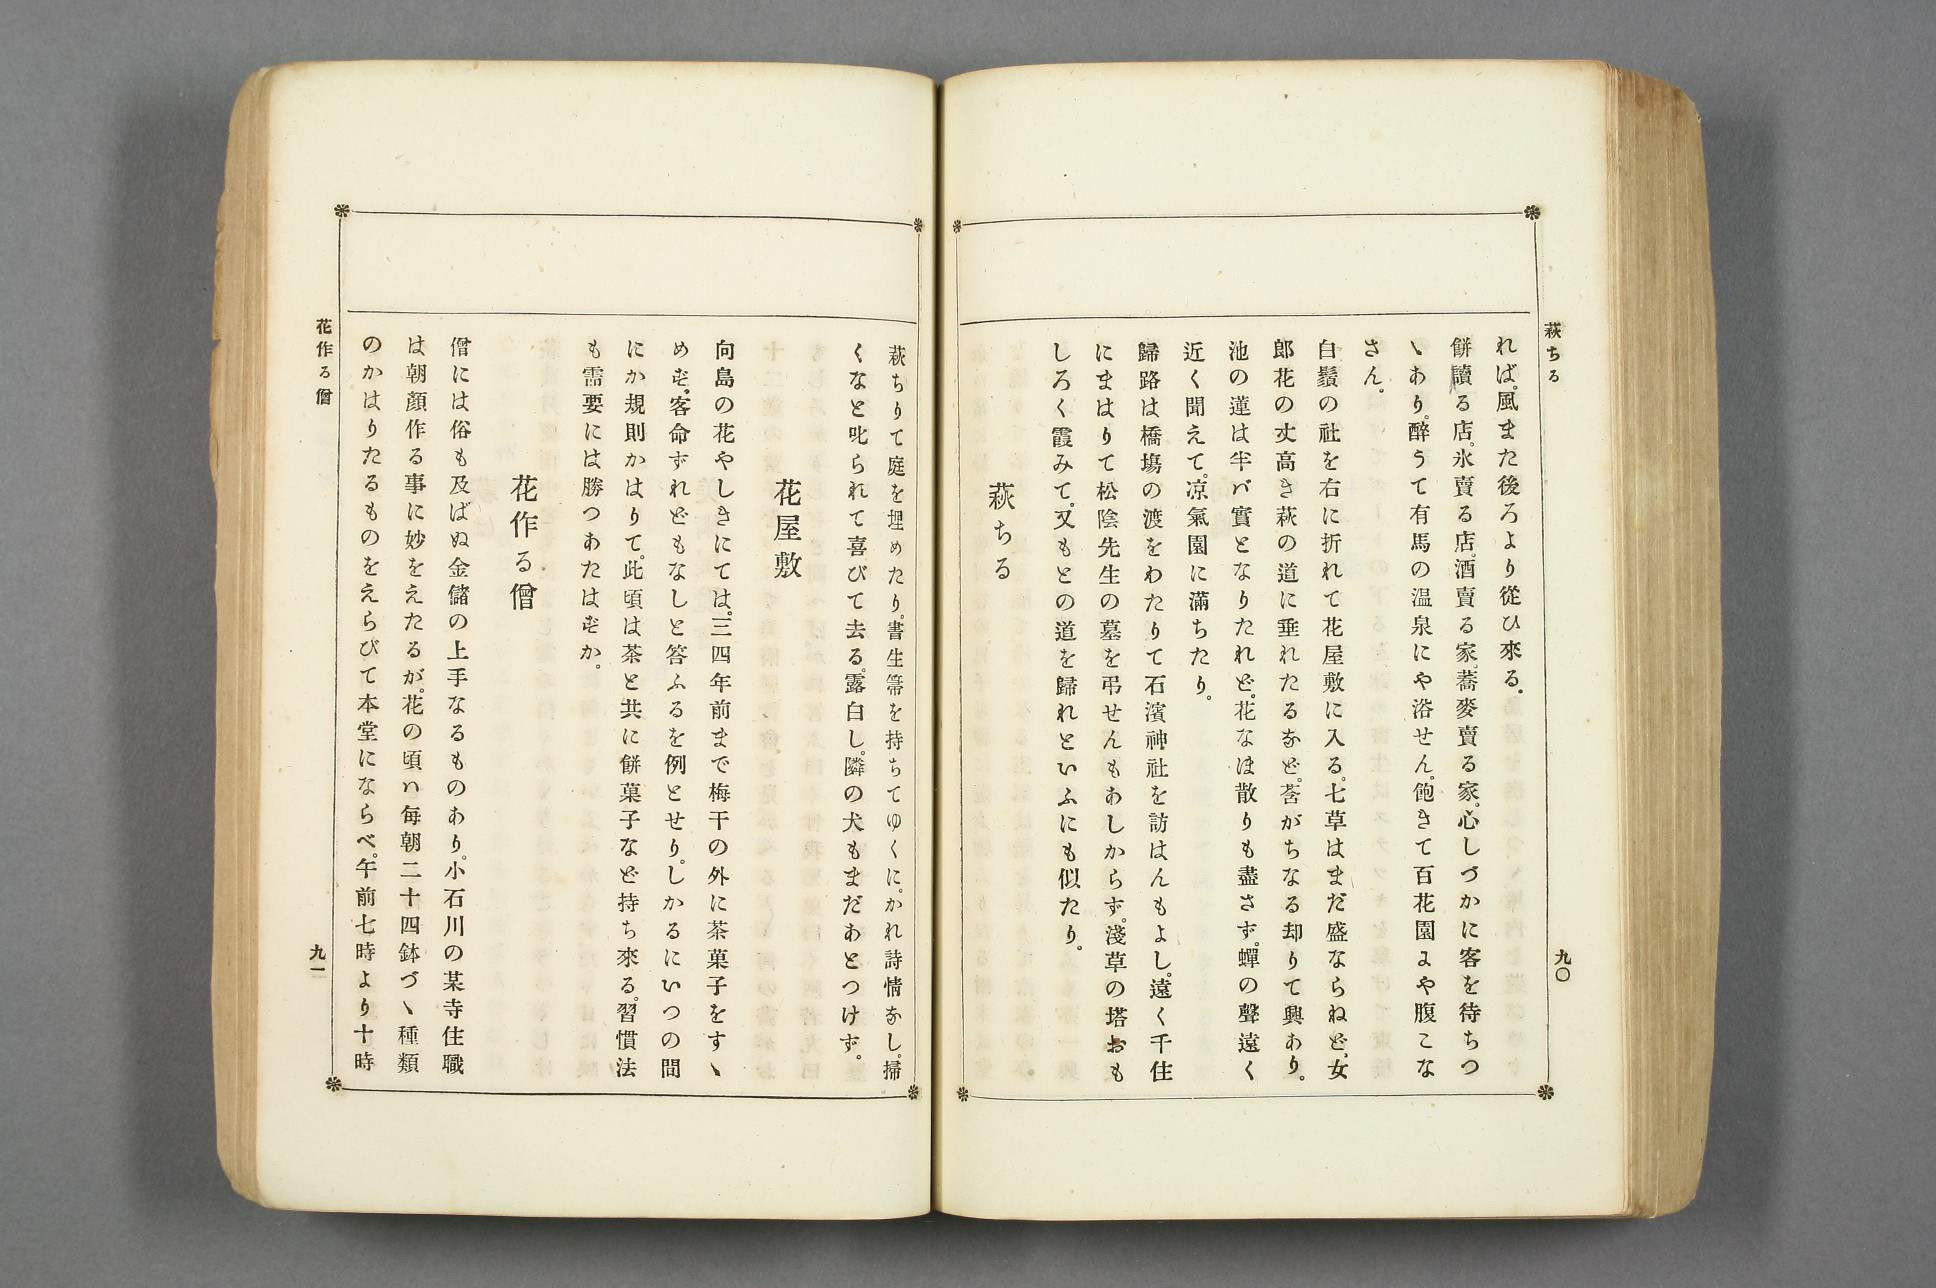 萩ちる
れば。風また後ろより從ひ來る。
餅讀る店。氷賣る店。酒賣る家。蕎麥賣る家。心しづかに客を待ちつ
ヽあり。醉うて有馬の温泉にや浴せん。飽きて百花園にや腹こな
さん。
白鬚の社を右に折れて花屋敷に入る。七草はまだ盛ならねど、女
郎花の丈高き萩の道に垂れたるなど。莟がちなる却りて興あり。
池の蓮は半バ實となりたれど。花なほ散りも盡さず。蟬の聲遠く
近く聞えて。凉氣園に滿ちたり。
歸路は橋塲の渡をわたりて石濱神社を訪はんもよし。遠く千住
にまはりて松陰先生の墓を弔せんもあしからず。淺草の塔おも
しろく霞みて。又もとの道を歸れといふにも似たり。
萩ちる
九〇
萩ちりて庭を埋めたり。書生箒を持ちてゆくに。かれ詩情なし。掃
くなと叱られて喜びて去る。露白し。隣の犬もまだあとつけず。
花屋敷
向島の花やしきにては。三四年前まで梅干の外に茶菓子をすヽ
めず。客命ずれどもなしと答ふるを例とせり。しかるにいつの間
にか規則かはりて。此頃は茶と共に餅菓子など持ち來る。習慣法
も需要には勝つあたはずか。
花作る僧
僧には俗も及ばぬ金儲の上手なるものあり。小石川の某寺住職
は朝顏作る事に妙をえたるが。花の頃ハ毎朝二十四鉢づヽ種類
のかはりたるものをえらびて本堂にならべ。午前七時より十時
花作る僧
九一